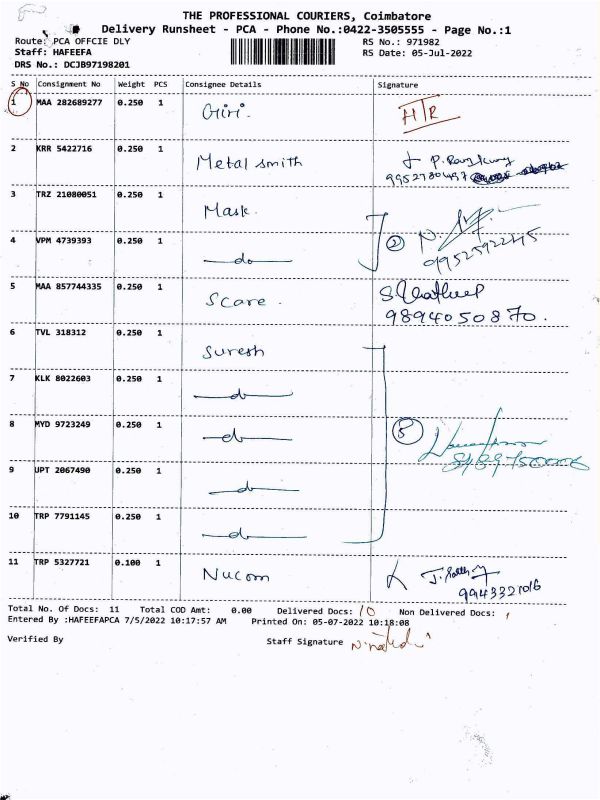 THE PROFESSIONAL COURIERS, Coimbatore
Delivery Runsheet - PCA - Phone No.:0422-3505555 - Page No.:1
Route: PCA OFFCIE DLY RS No.: 971982
Staff: HAFEEFA RS Date: 05-Jul-2022
DRS No.: DCJB97198201
S No Consignment No Weight PCS Consignee Details Signature
1 MAA 282689277 0.250 1 Giri. HTR
2 KRR 5422716 0.250 1 Metal smith
3 TRZ 21080051 0.250 1 Mask.
4 VPM 4739393 0.250 1 do 2 9952592245
5 MAA 857744335 0.250 1 Scare.
9894050870.
6 TVL 318312 0.250 1 Suresh
7 KLK 8022603 0.250 1 do
8 MYD 9723249 0.250 1 do 5
9 UPT 2067490 0.250 1 do
10 TRP 7791145 0.250 1 do
11 TRP 5327721 0.100 1 Nucom
9943321016
Total No. Of Docs: 11 Total COD Amt: 0.00 Delivered Docs: 10 Non Delivered Docs: 1
Entered By :HAFEEFAPCA 7/5/2022 10:17:57 AM Printed On: 05-07-2022 10:18:08
Verified By Staff Signature